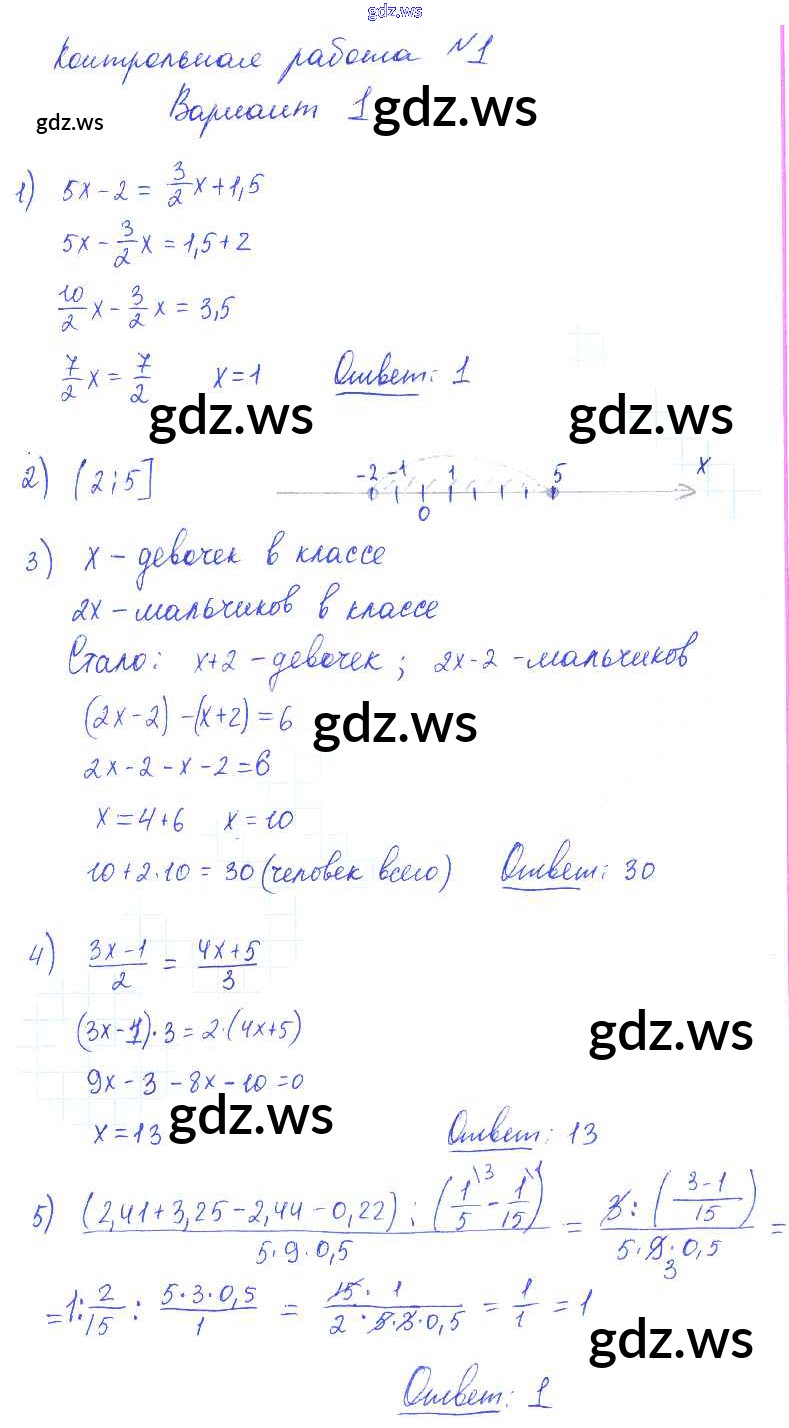 gdz.ws
Контрольная работа №1
Вариант 1 gdz.ws
gdz.ws
1) 5x - 2 = 3/2 x + 1,5
5x - 3/2 x = 1,5 + 2
10/2 x - 3/2 x = 3,5
7/2 x = 7/2 x = 1 Ответ: 1
gdz.ws gdz.ws
2) (2; 5] -2 -1 0 1 5 x
3) x - девочек в классе
2x - мальчиков в классе
Стало: x+2 - девочек; 2x-2 - мальчиков
(2x-2) - (x+2) = 6 gdz.ws
2x - 2 - x - 2 = 6
x = 4+6 x = 10
10 + 2·10 = 30 (человек всего) Ответ: 30
4) (3x-1)/2 = (4x+5)/3
(3x-1)·3 = 2·(4x+5) gdz.ws
9x - 3 - 8x - 10 = 0
x = 13 gdz.ws Ответ: 13
5) (2,41+3,25-2,44-0,22) : (1/5\3 - 1/15\1) / 5·9·0,5 = 3 : ((3-1)/15) / 5·9·0,5 =
3
= 1 : 2/15 : 5·3·0,5/1 = 15·1 / 2·5·3·0,5 = 1/1 = 1
gdz.ws
Ответ: 1